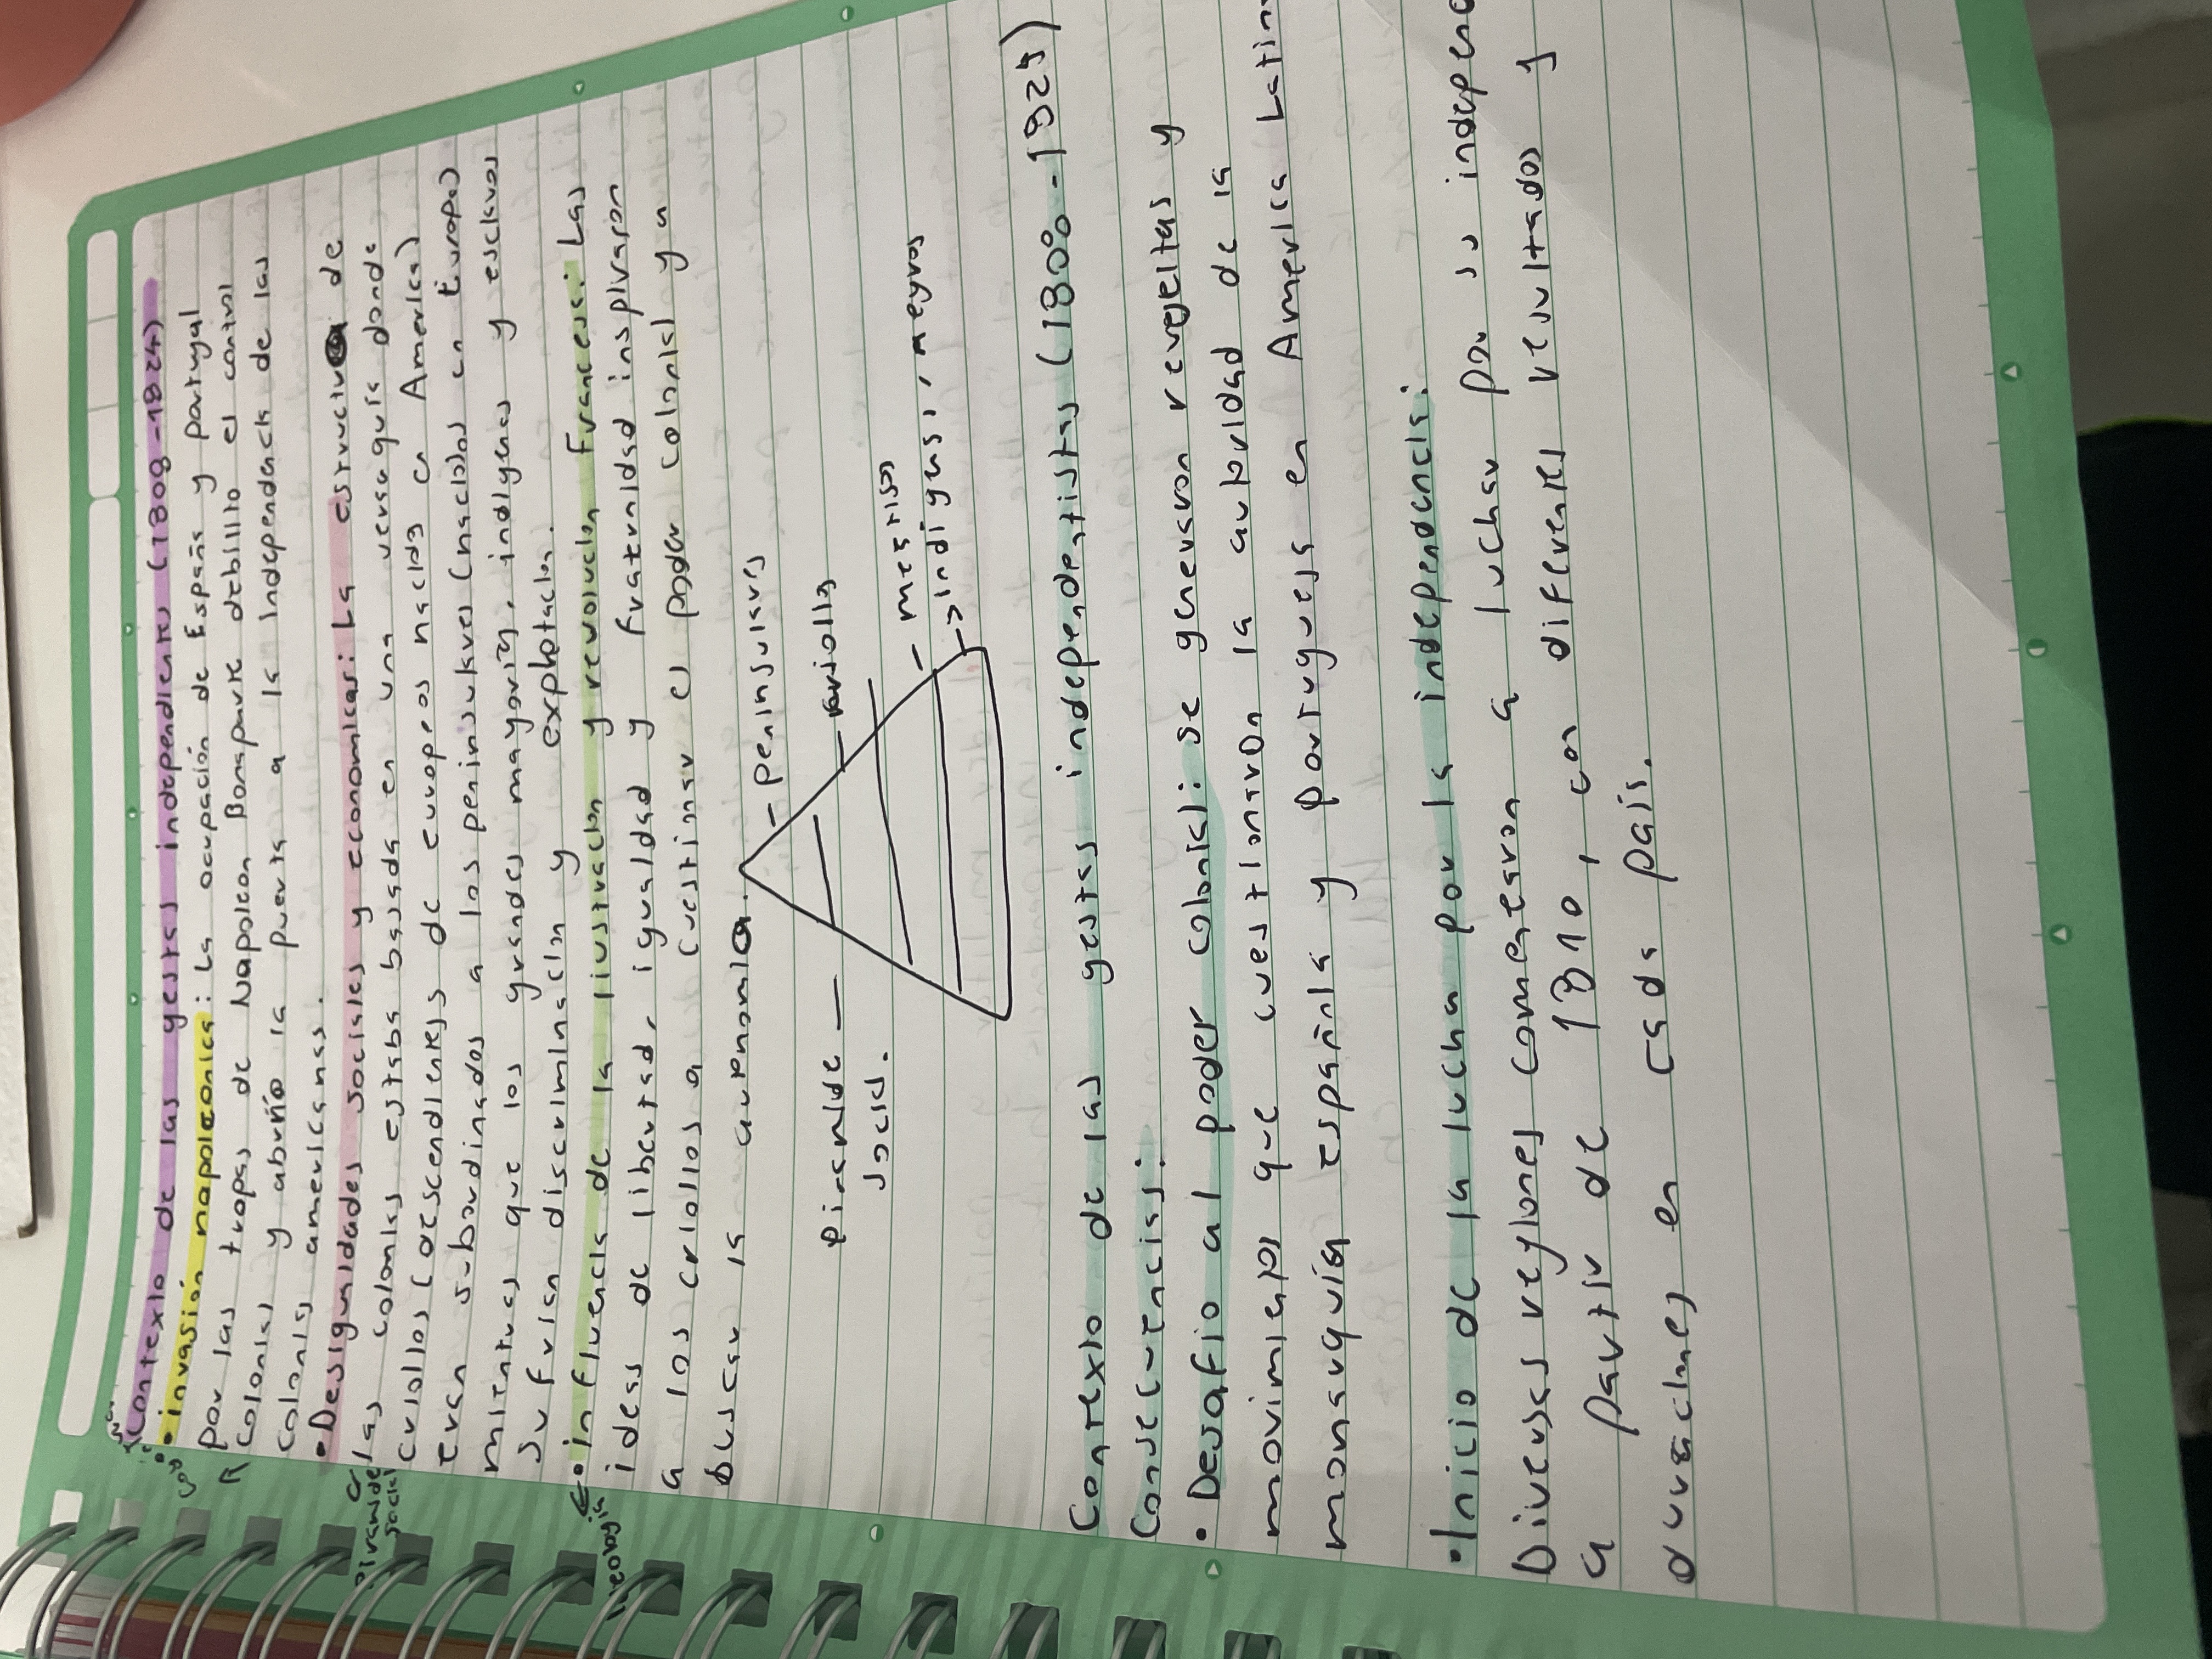 Contexto de las gestas independientes (1808-1824)
• invasión napoleonica: la ocupación de España y portugal
por las tropas de Napoleon Bonaparte debilito el control
Colonial y abrío la puerta a la Independencia de las
Colonias americanas.
• Desigualdades sociales y economicas: La estructura de
las colonias estaba basada en una jerarquía donde
criollos (descendientes de europeos nacida en America)
eran subordinados a los peninsulares (nacidos en Europa)
mientras que los grandes mayoría, indigenas y esclavos
sufrian discriminación y explotacion.
• influencia de la ilustracion y revolucion francesa: Las
ideas de libertad, igualdad y fraternidad inspiraron
a los criollos a cuestinar el poder colonial y a
buscar la autonomia.
piramide
social
ideologia
piramide —
social.
- peninsulares
- criollos
- mestisos
-> indigenas, negros
Contexto de las gestas independentistas (1808-1824)
Consecuencias:
• Desafio al poder colonial: se generaron revueltas y
movimientos que cuestionaron la autoridad de la
monarquía española y portuguesa en America Latin
• Inicio de la lucha por la independencia:
Diversas regiones comenzaron a luchar por su independ
a partir de 1810, con diferentes resultados y
duraciones en cada país.